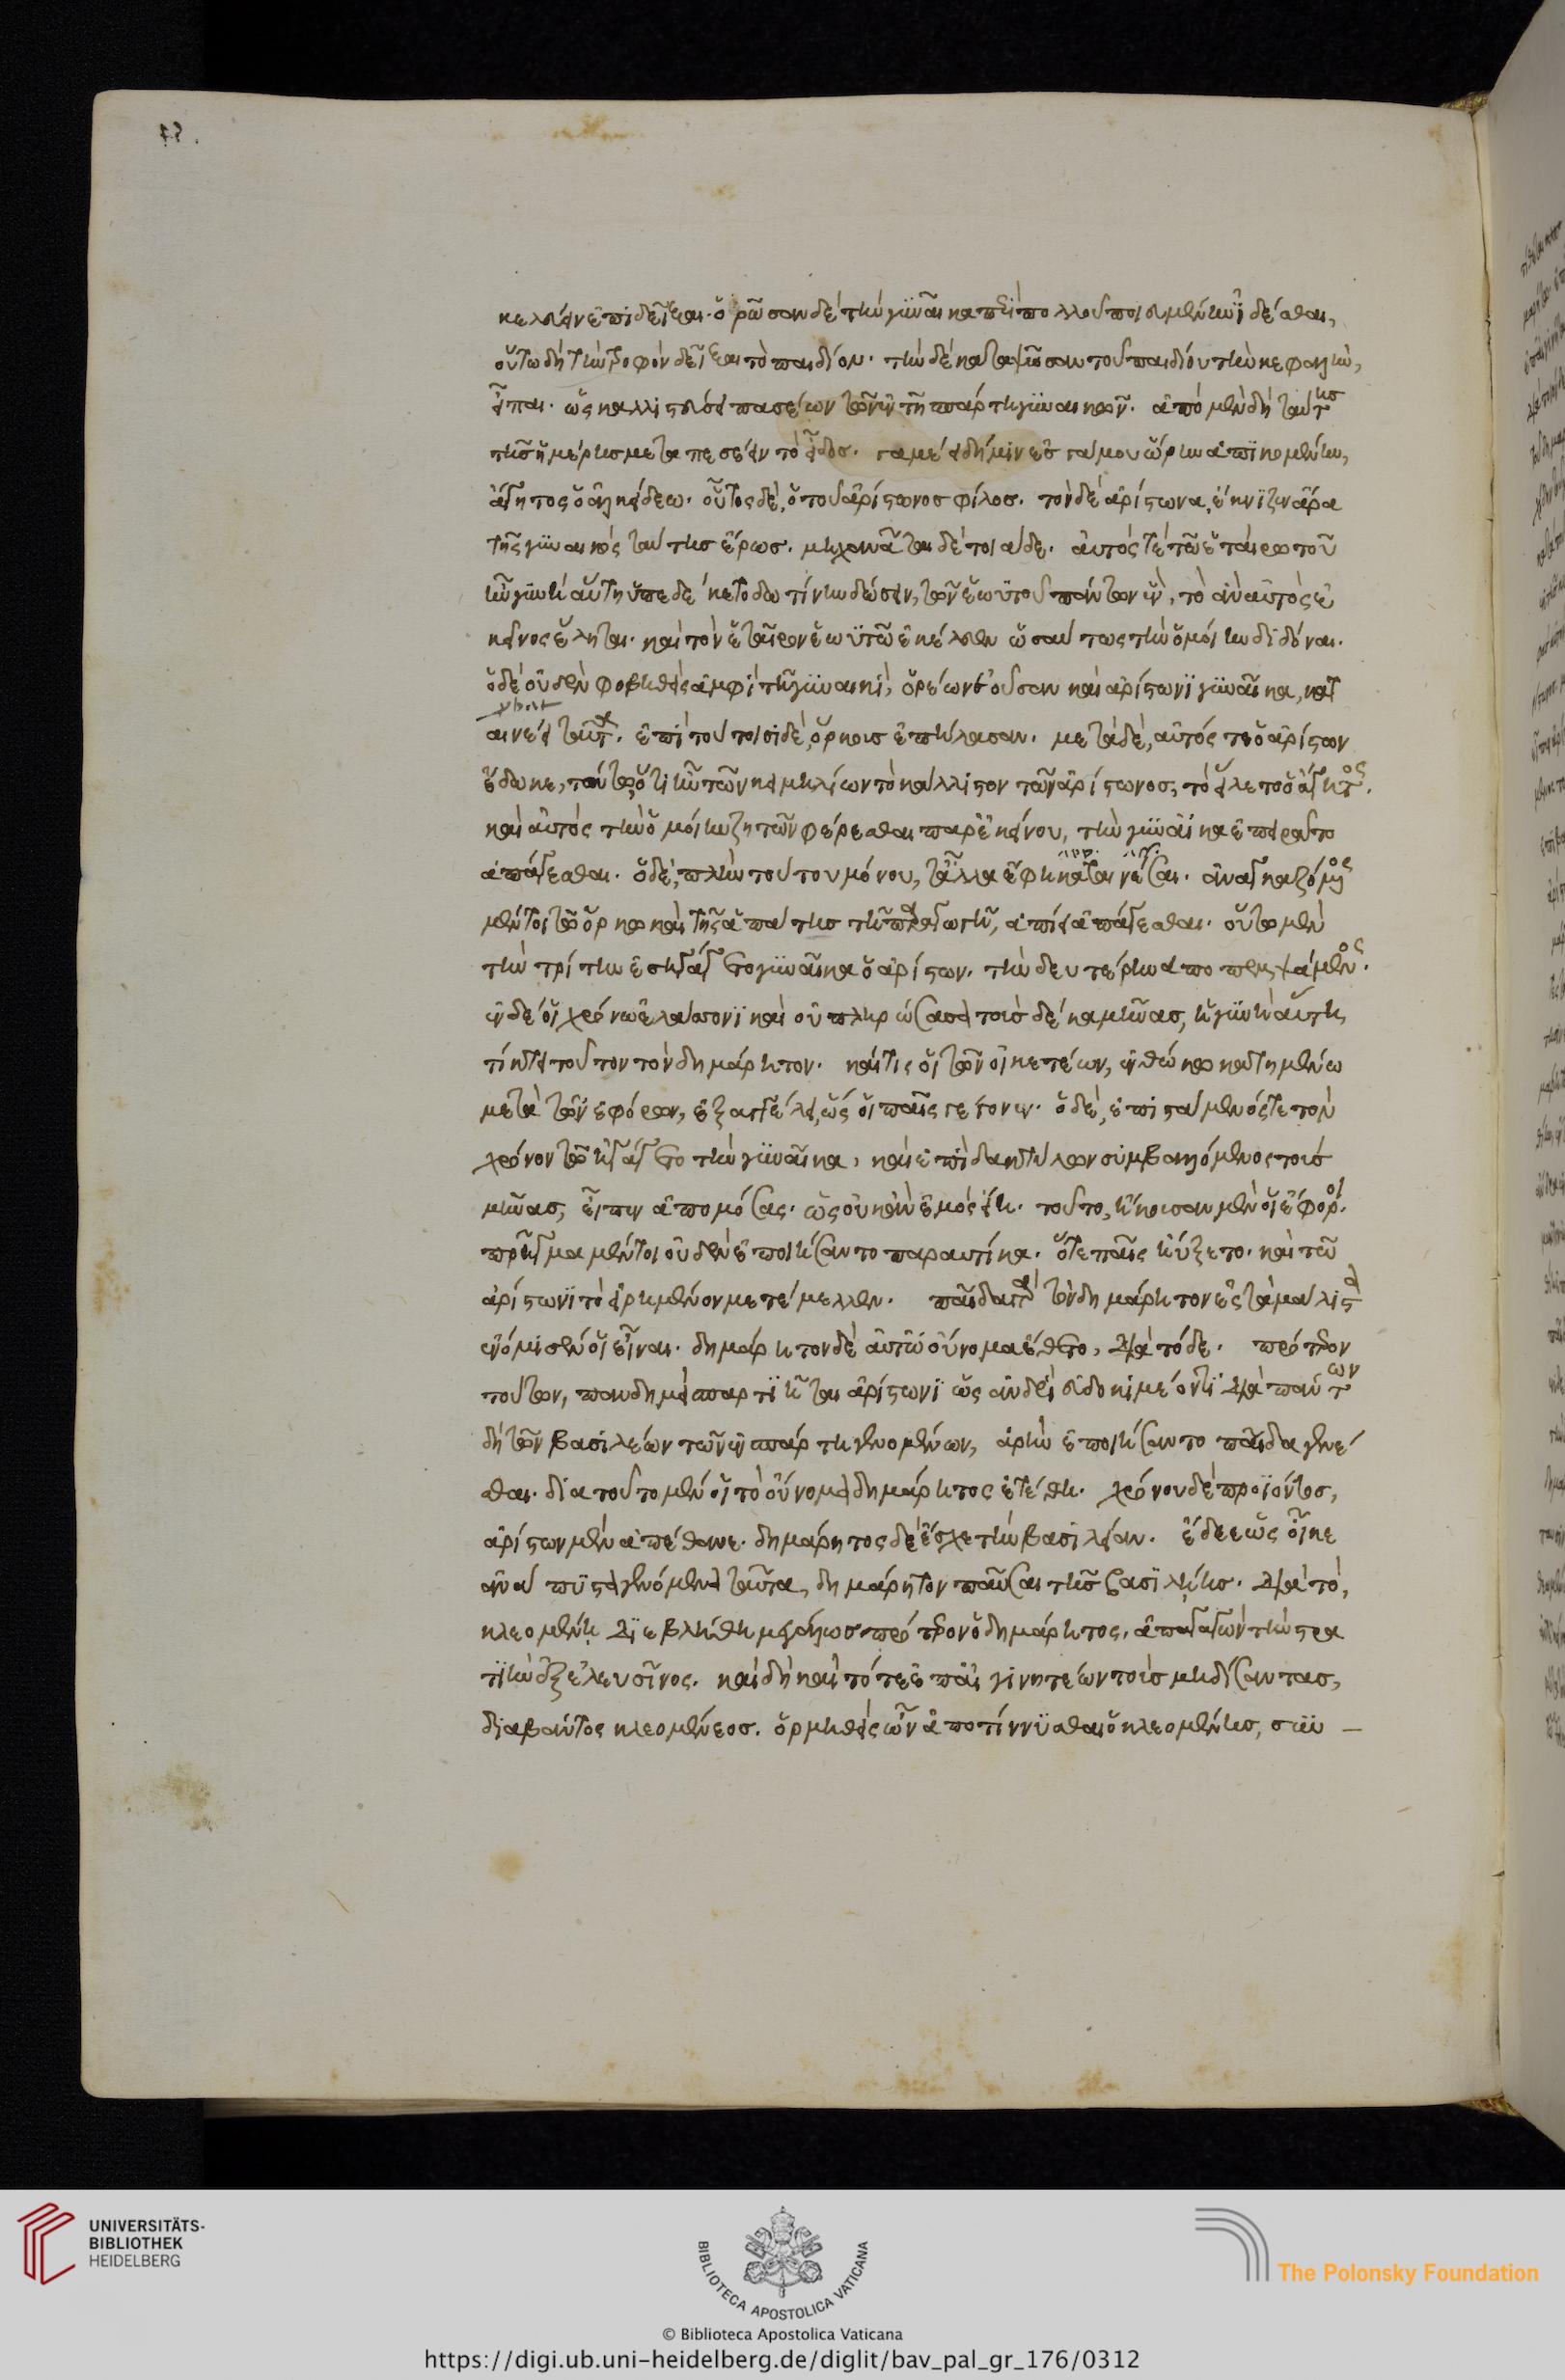 κελεύειν ἐπιδεῖξαι. ὁρῶσαν δὲ τὴν γυναῖκα περὶ πολλοῦ ποιευμένην ἰδέσθαι,
οὕτω δὴ τὴν τροφὸν δεῖξαι τὸ παιδίον. τὴν δὲ καταψῶσαν τοῦ παιδίου τὴν κεφαλὴν,
εἶπαι. ὡς καλλιστεύσει πασέων τῶν ἐν τῇ σπάρτη γυναικῶν. ἀπὸ μὲν δὴ ταύτης
τῆς ἡμέρης μεταπεσέειν τὸ εἶδος. γαμέει δή μιν ἐς γάμου ὥρην ἀπικομένην,
ἄγητος ὁ ἀλκείδεω. οὗτος δὲ, ὁ τοῦ ἀρίστωνος φίλος. τὸν δὲ ἀρίστωνα, ἔκνιζεν ἄρα
τῆς γυναικὸς ταύτης ἔρως. μηχανᾶται δὲ τοιάδε. αὐτός τε τῶ ἑταίρω τοῦ
ἦν γυνὴ αὕτη ὑπεδέκετο δωτίνην δώσειν, τῶν ἑωυτοῦ πάντων ἓν, τὸ ἂν αὐτὸς ἐ
κεῖνος ἕληται. καὶ τὸν ἑταῖρον ἑωυτῶ ἐκέλευεν ὡσαύτως τὴν ὁμοίην διδόναι.
ὁ δὲ οὐδὲν φοβηθεὶς ἀμφὶ τῆ γυναικὶ, ὁρέων ἐοῦσαν καὶ ἀρίστωνι γυναῖκα, κατ
αινέει ταῦτα. ἐπὶ τούτοισι δὲ, ὅρκοις ἐπήλασαν. μετὰ δὲ, αὐτός τε ὁ ἀρίστων
ἔδωκε, τοῦτο, ὅτι ἦν τῶν κειμηλίων τὸ κάλλιστον τῶν ἀρίστωνος, τὸ εἵλετο ὁ ἄγητος.
καὶ αὐτὸς τὴν ὁμοίην ζητῶν φέρεσθαι παρ' ἐκείνου, τὴν γυναῖκα ἐπειρᾶτο
ἀπάγεσθαι. ὁ δὲ, πλὴν τούτου μόνου, τἄλλα ἔφη καταινέσαι. ἀναγκαζόμενος
μέντοι τῶ ὅρκω καὶ τῆς ἀπάτης τῆ παραγωγῆ, ἀπίει ἀπάγεσθαι. οὕτω μὲν
τὴν τρίτην ἐσηγάγετο γυναῖκα ὁ ἀρίστων. τὴν δευτέρην ἀποπεμψάμενος.
ἐν δέ οἱ χρόνω ἐλάσσονι καὶ οὐ πληρώσασα τοὺς δέκα μῆνας, ἡ γυνὴ αὕτη,
τίκτει τοῦτον τὸν δημάρητον. καί τίς οἱ τῶν οἰκετέων, ἐν θώκω κατημένω
μετὰ τῶν ἐφόρων, ἐξαγγέλει, ὥς οἱ παῖς γέγονεν. ὁ δὲ, ἐπιστάμενός τε τὸν
χρόνον τῶ ἠγάγετο τὴν γυναῖκα, καὶ ἐπὶ δακτύλων συμβαλόμενος τοὺς
μῆνας, εἶπεν ἀπομόσας. ὡς οὐκ ἂν ἐμὸς εἴη. τοῦτο, ἤκουσαν μὲν οἱ ἔφοροι.
πρῆγμα μέντοι οὐδὲν ἐποιήσαντο παραυτίκα. ὅ τε παῖς ηὔξετο. καὶ τῶ
ἀρίστωνι τὸ εἰρημένον μετέμελλεν. παῖδα γὰρ τὸν δημάρητον ἐς τὰ μάλιστα
ἐνόμισέν οἱ εἶναι. δημάρητον δὲ αὐτῶ οὔνομα ἔθετο, διὰ τόδε. πρότερον
τούτων, πανδημεὶ σπαρτιῆται ἀρίστωνι ὡς ἀνδρὶ εὐδοκιμέοντι διὰ πάντων
δὴ τῶν βασιλέων τῶν ἐν σπάρτη γενομένων, ἀρὴν ἐποιήσαντο παῖδα γενέ
σθαι. διὰ τοῦτο μέν οἱ τὸ οὔνομα δημάρητος ἐτέθη. χρόνου δὲ προϊόντος,
ἀρίστων μὲν ἀπέθανε. δημάρητος δὲ ἔσχε τὴν βασιληίην. ἔδεε ὡς οἶκε
ἀνάπυστα γενόμενα ταῦτα, δημάρητον παῦσαι τῆς βασιληίης. διὰ τὸ,
κλεομένη διεβλήθη μεγάλως πρότερον ὁ δημάρητος, ἀπαγαγὼν τὴν στρα
τιὴν ἐξ ἐλευσῖνος. καὶ δὴ καὶ τότε ἐπ' αἰγινητέων τοὺς μηδίσαντας,
διαβάντος κλεομένεος. ὁρμηθεὶς ὦν ἀποτίννυσθαι ὁ κλεομένης, συν –
UNIVERSITÄTS-
BIBLIOTHEK
HEIDELBERG
BIBLIOTECA APOSTOLICA VATICANA
The Polonsky Foundation
© Biblioteca Apostolica Vaticana
https://digi.ub.uni-heidelberg.de/diglit/bav_pal_gr_176/0312